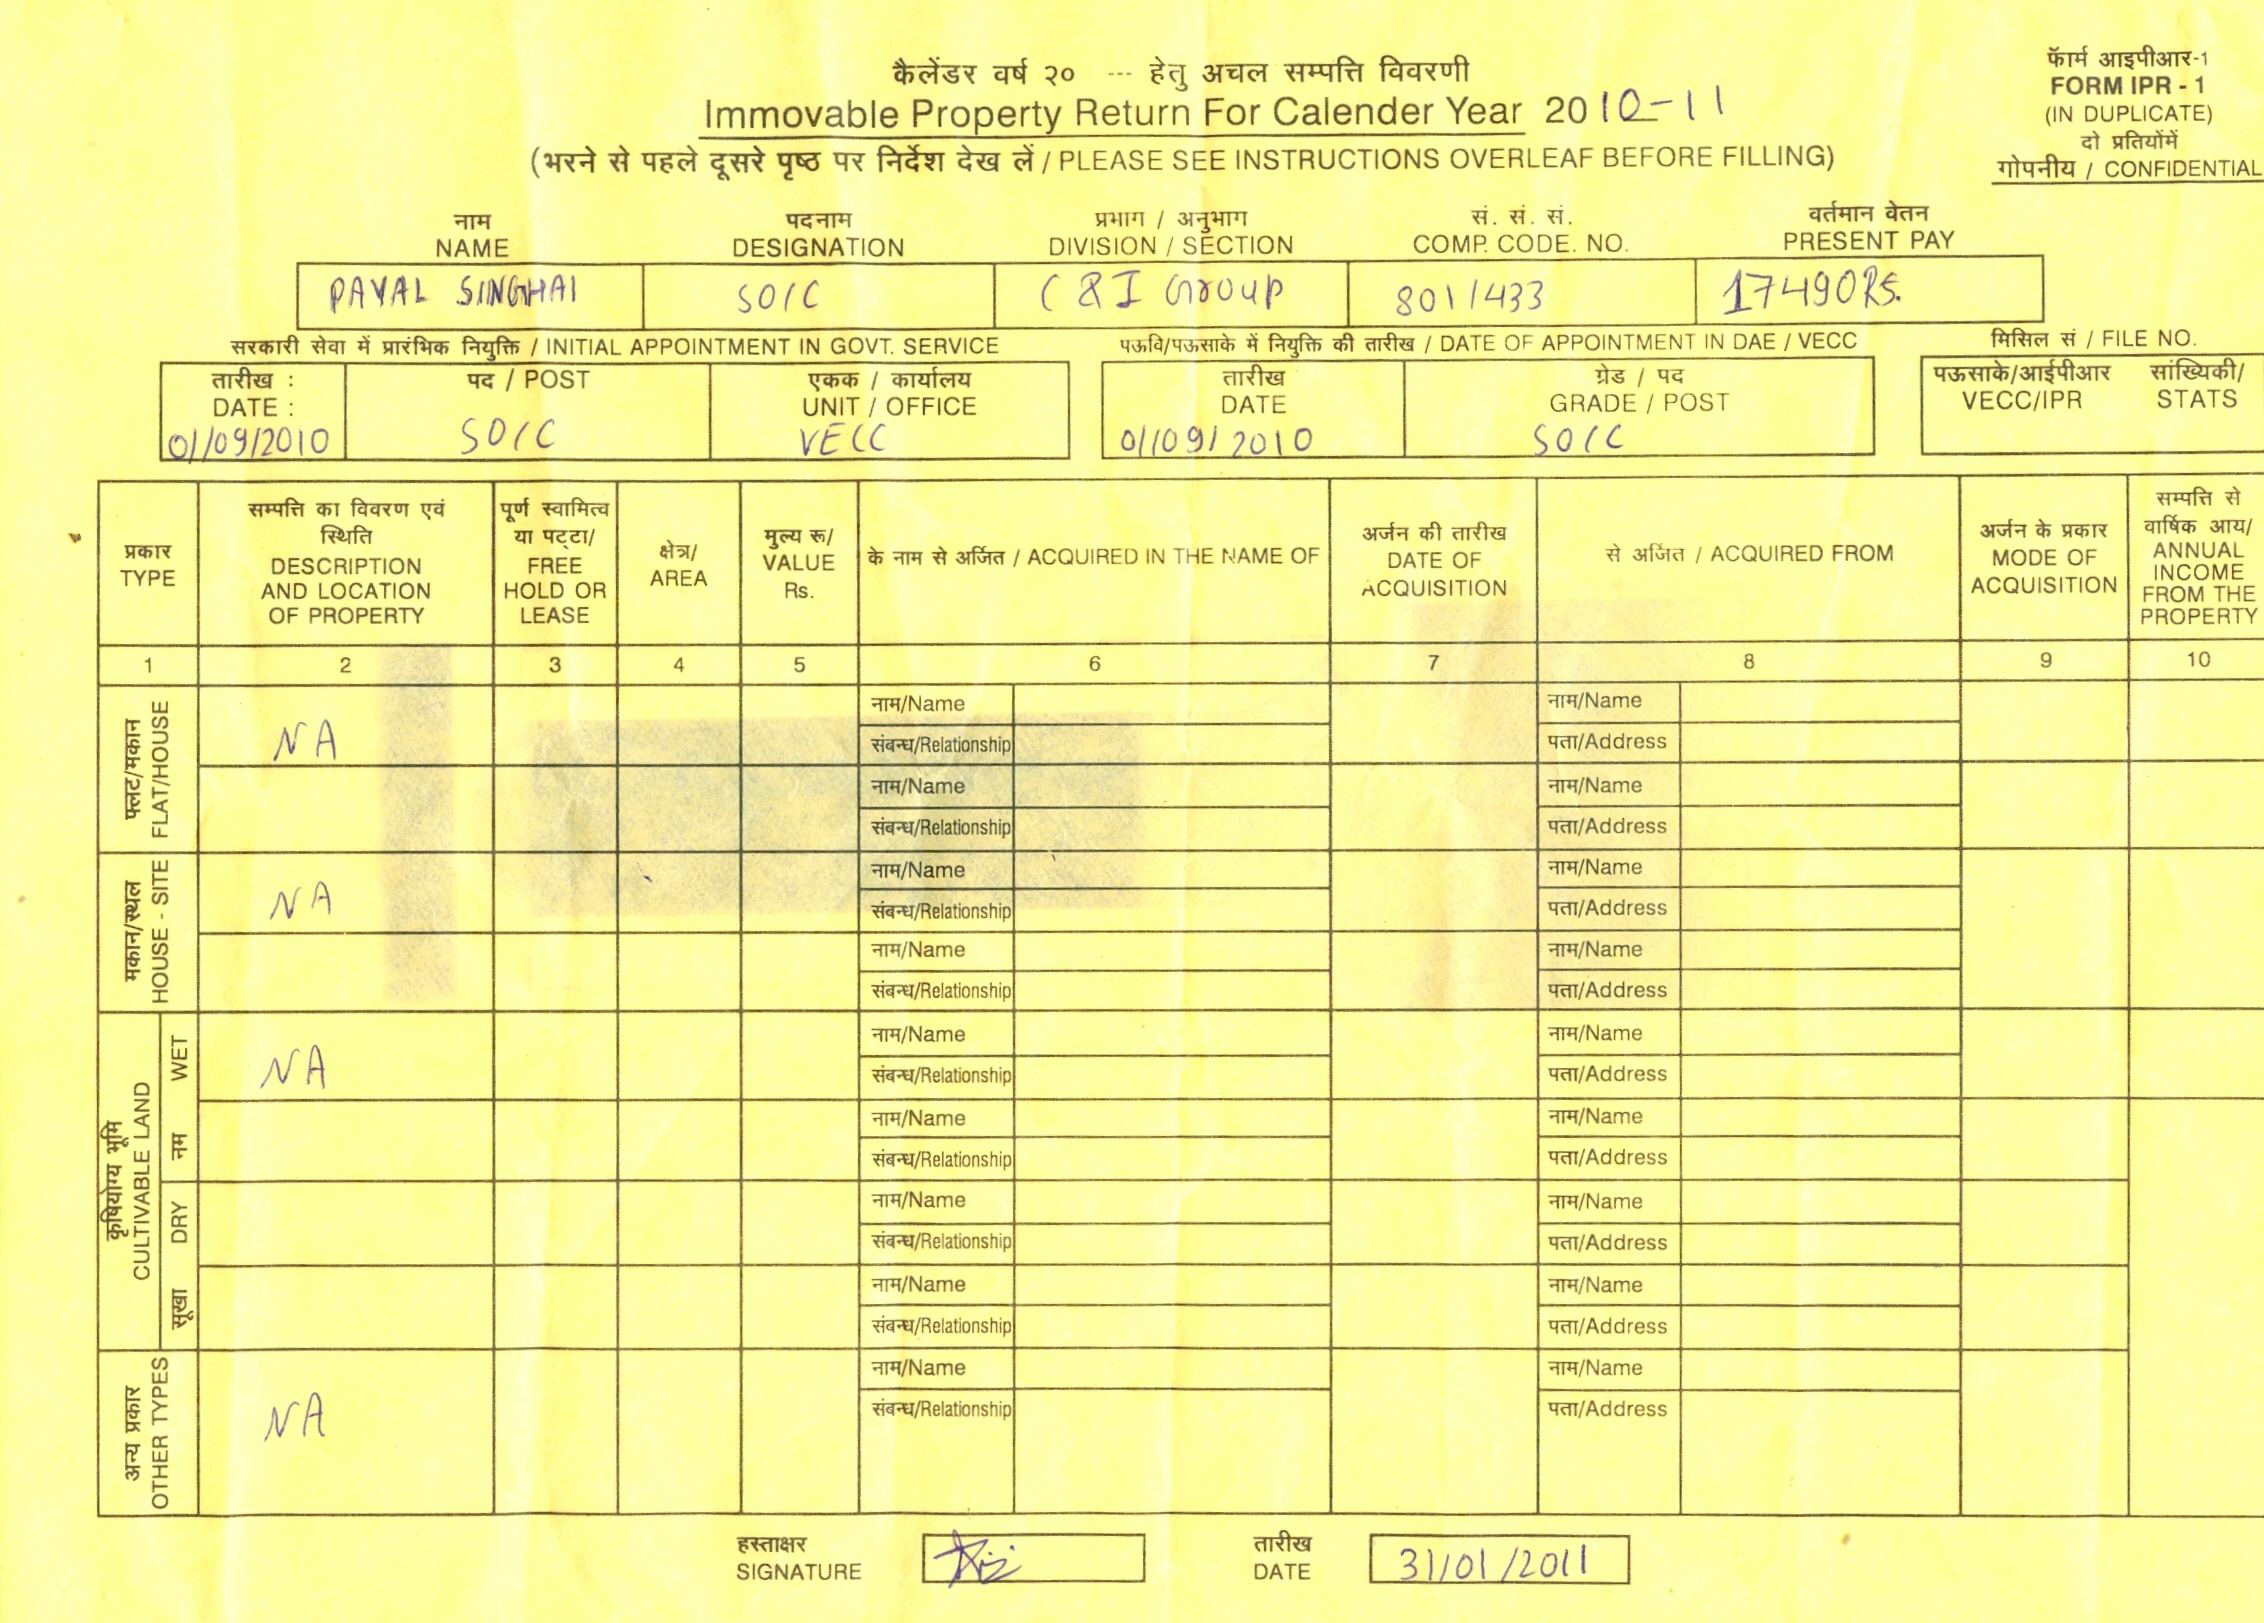 फॅार्म आइपीआर-1
FORM IPR - 1
(IN DUPLICATE)
दो प्रतियोंमें
गोपनीय / CONFIDENTIAL
कैलेंडर वर्ष २० --- हेतु अचल सम्पत्ति विवरणी
Immovable Property Return For Calender Year 2010-11
(भरने से पहले दूसरे पृष्ठ पर निर्देश देख लें / PLEASE SEE INSTRUCTIONS OVERLEAF BEFORE FILLING)
नाम पदनाम प्रभाग / अनुभाग सं. सं. सं. वर्तमान वेतन
NAME DESIGNATION DIVISION / SECTION COMP. CODE. NO. PRESENT PAY
PAYAL SINGHAI SO/C C & I Group 801/433 17490Rs.
सरकारी सेवा में प्रारंभिक नियुक्ति / INITIAL APPOINTMENT IN GOVT. SERVICE पऊवि/पऊसाके में नियुक्ति की तारीख / DATE OF APPOINTMENT IN DAE / VECC मिसिल सं / FILE NO.
तारीख : पद / POST एकक / कार्यालय तारीख ग्रेड / पद पऊसाके/आईपीआर सांख्यिकी/
DATE : UNIT / OFFICE DATE GRADE / POST VECC/IPR STATS
01/09/2010 SO/C VECC 01/09/2010 SO/C
प्रकार
TYPE
सम्पत्ति का विवरण एवं
स्थिति
DESCRIPTION
AND LOCATION
OF PROPERTY
पूर्ण स्वामित्व
या पट्टा/
FREE
HOLD OR
LEASE
क्षेत्र/
AREA
मुल्य रू/
VALUE
Rs.
के नाम से अर्जित / ACQUIRED IN THE NAME OF
अर्जन की तारीख
DATE OF
ACQUISITION
से अर्जित / ACQUIRED FROM
अर्जन के प्रकार
MODE OF
ACQUISITION
सम्पत्ति से
वार्षिक आय/
ANNUAL
INCOME
FROM THE
PROPERTY
1 2 3 4 5 6 7 8 9 10
फ्लट/मकान
FLAT/HOUSE
NA
नाम/Name नाम/Name
संबन्ध/Relationship पता/Address
नाम/Name नाम/Name
संबन्ध/Relationship पता/Address
मकान/स्थल
HOUSE - SITE
NA
नाम/Name नाम/Name
संबन्ध/Relationship पता/Address
नाम/Name नाम/Name
संबन्ध/Relationship पता/Address
कृषियोग्य भूमि
CULTIVABLE LAND
नम WET
NA
नाम/Name नाम/Name
संबन्ध/Relationship पता/Address
नाम/Name नाम/Name
संबन्ध/Relationship पता/Address
सूखा DRY
नाम/Name नाम/Name
संबन्ध/Relationship पता/Address
नाम/Name नाम/Name
संबन्ध/Relationship पता/Address
अन्य प्रकार
OTHER TYPES
NA
नाम/Name नाम/Name
संबन्ध/Relationship पता/Address
हस्ताक्षर तारीख
SIGNATURE DATE 31/01/2011